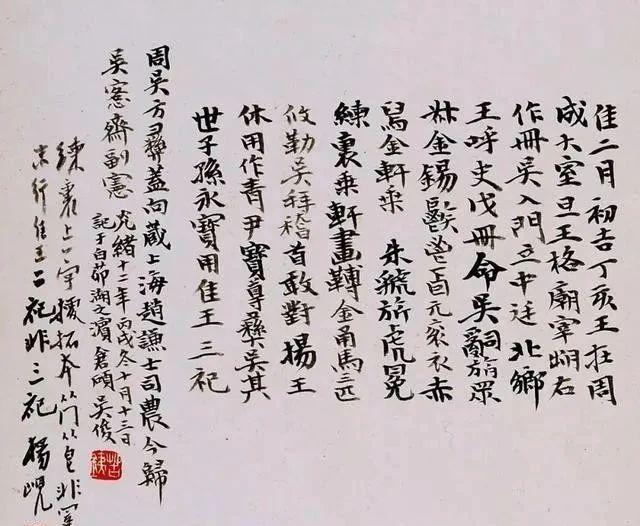 隹二月初吉丁亥王在周
成大室旦王格廟宰朏右
作冊吴入門立中廷北鄉
王呼史戊冊命吴司旃眾
叔金錫鬯卣元衮衣赤
舄金軒乘朱虢旂虎冕
練裏乘軒畫轉金甬馬三匹
攸勒吴拜稽首敢對揚王
休用作青尹寶尊彝吴其
世子孫永寶用隹王三祀
周吴方彝蓋向藏上海趙謙士司農今歸
吴愙齋副憲光緒十二年丙戌冬十月十三日
記于白茆湖之濱倉碩吴俊
練裏上一字模拓
末行隹王二祀非三祀楊峴